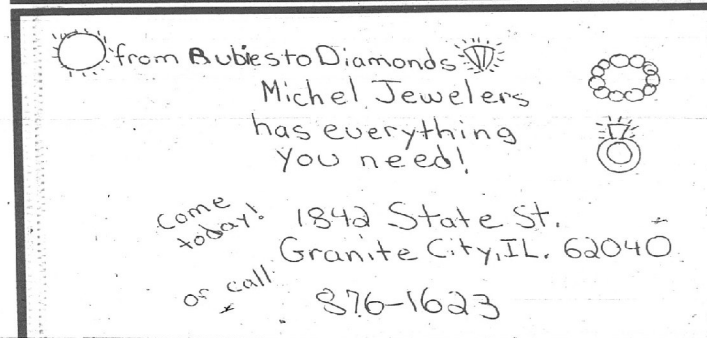 from Rubies to Diamonds
Michel Jewelers
has everything
you need!
come today!
1842 State St.
Granite City, IL. 62040
or call
876-1623